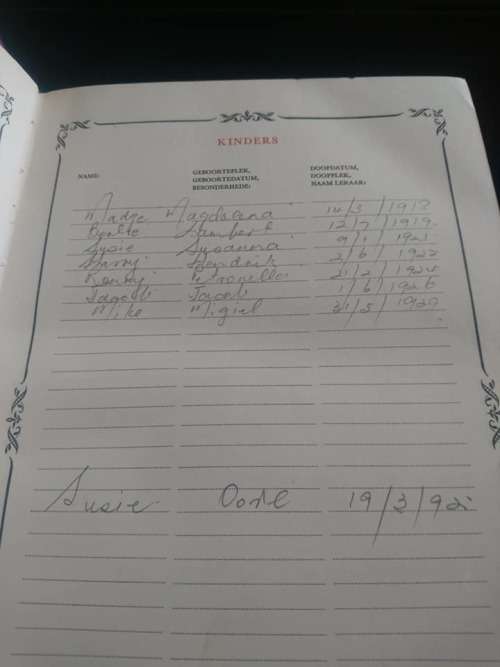 KINDERS
NAME:
GEBOORTEPLEK,
GEBOORTEDATUM,
BESONDERHEDE:
DOOPDATUM,
DOOPPLEK,
NAAM LERAAR:
Madge Magdalena 14/3/1918
Lambert 12/7/1919
Susie Susanna 9/1/1921
Harry Hendrik 2/6/1922
Petronella
Jacob 1/6/1926
Mike Migiel 31/5/1929
Susie 19/3/92